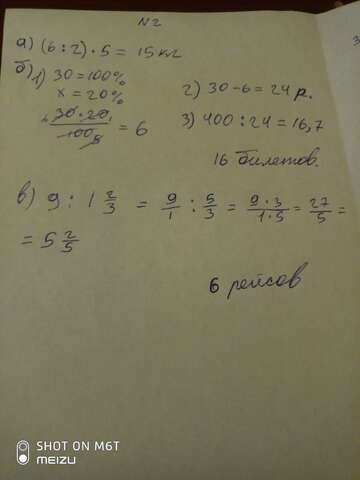 N 2
а) (6 : 2) · 5 = 15 кг
б) 1) 30 = 100%
x = 20%
30 · 20 / 100 = 6
2) 30 - 6 = 24 р.
3) 400 : 24 = 16,7
16 билетов.
в) 9 : 1 2/3 = 9/1 : 5/3 = 9 · 3 / 1 · 5 = 27/5 =
= 5 2/5
6 рейсов
SHOT ON M6T
MEIZU